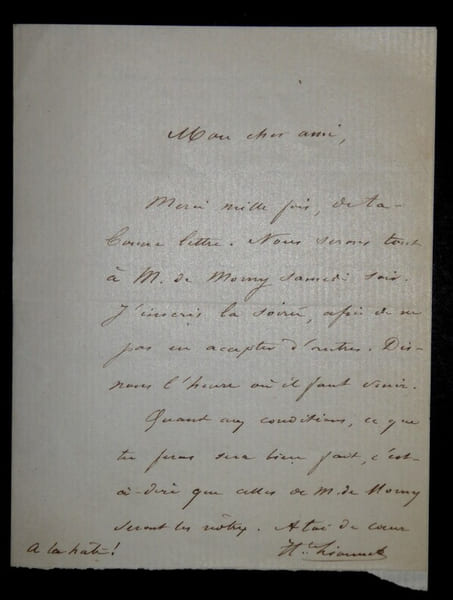 Mon cher ami,
Merci mille fois, de ta
bonne lettre. Nous serons tout
à M. de Morny samedi soir.
J'inscris la soirée, afin de ne
pas en accepter d'autres. Dis-
nous l'heure où il faut venir.
Quant aux conditions, ce que
tu feras sera bien fait, c'est-
à-dire que celles de M. de Morny
seront les nôtres. A toi de cœur
A la hâte!
Hte Lionnet